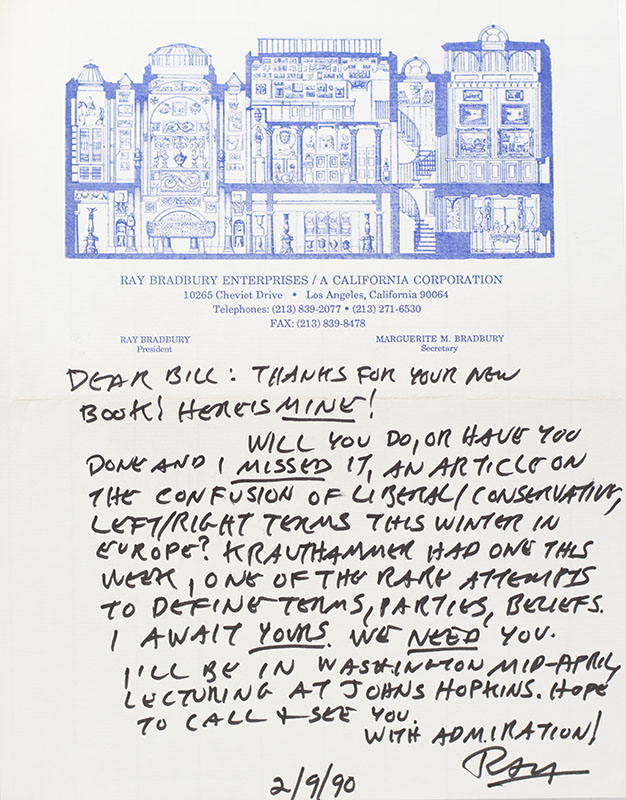 RAY BRADBURY ENTERPRISES / A CALIFORNIA CORPORATION
10265 Cheviot Drive • Los Angeles, California 90064
Telephones: (213) 839-2077 • (213) 271-6530
FAX: (213) 839-8478
RAY BRADBURY MARGUERITE M. BRADBURY
President Secretary
DEAR BILL: THANKS FOR YOUR NEW
BOOK! HERE IS MINE!
WILL YOU DO, OR HAVE YOU
DONE AND I MISSED IT, AN ARTICLE ON
THE CONFUSION OF LIBERAL/CONSERVATIVE,
LEFT/RIGHT TERMS THIS WINTER IN
EUROPE? KRAUTHAMMER HAD ONE THIS
WEEK, ONE OF THE RARE ATTEMPTS
TO DEFINE TERMS, PARTIES, BELIEFS.
I AWAIT YOURS. WE NEED YOU.
I'LL BE IN WASHINGTON MID-APRIL,
LECTURING AT JOHNS HOPKINS. HOPE
TO CALL + SEE YOU.
WITH ADMIRATION!
RAY
2/9/90